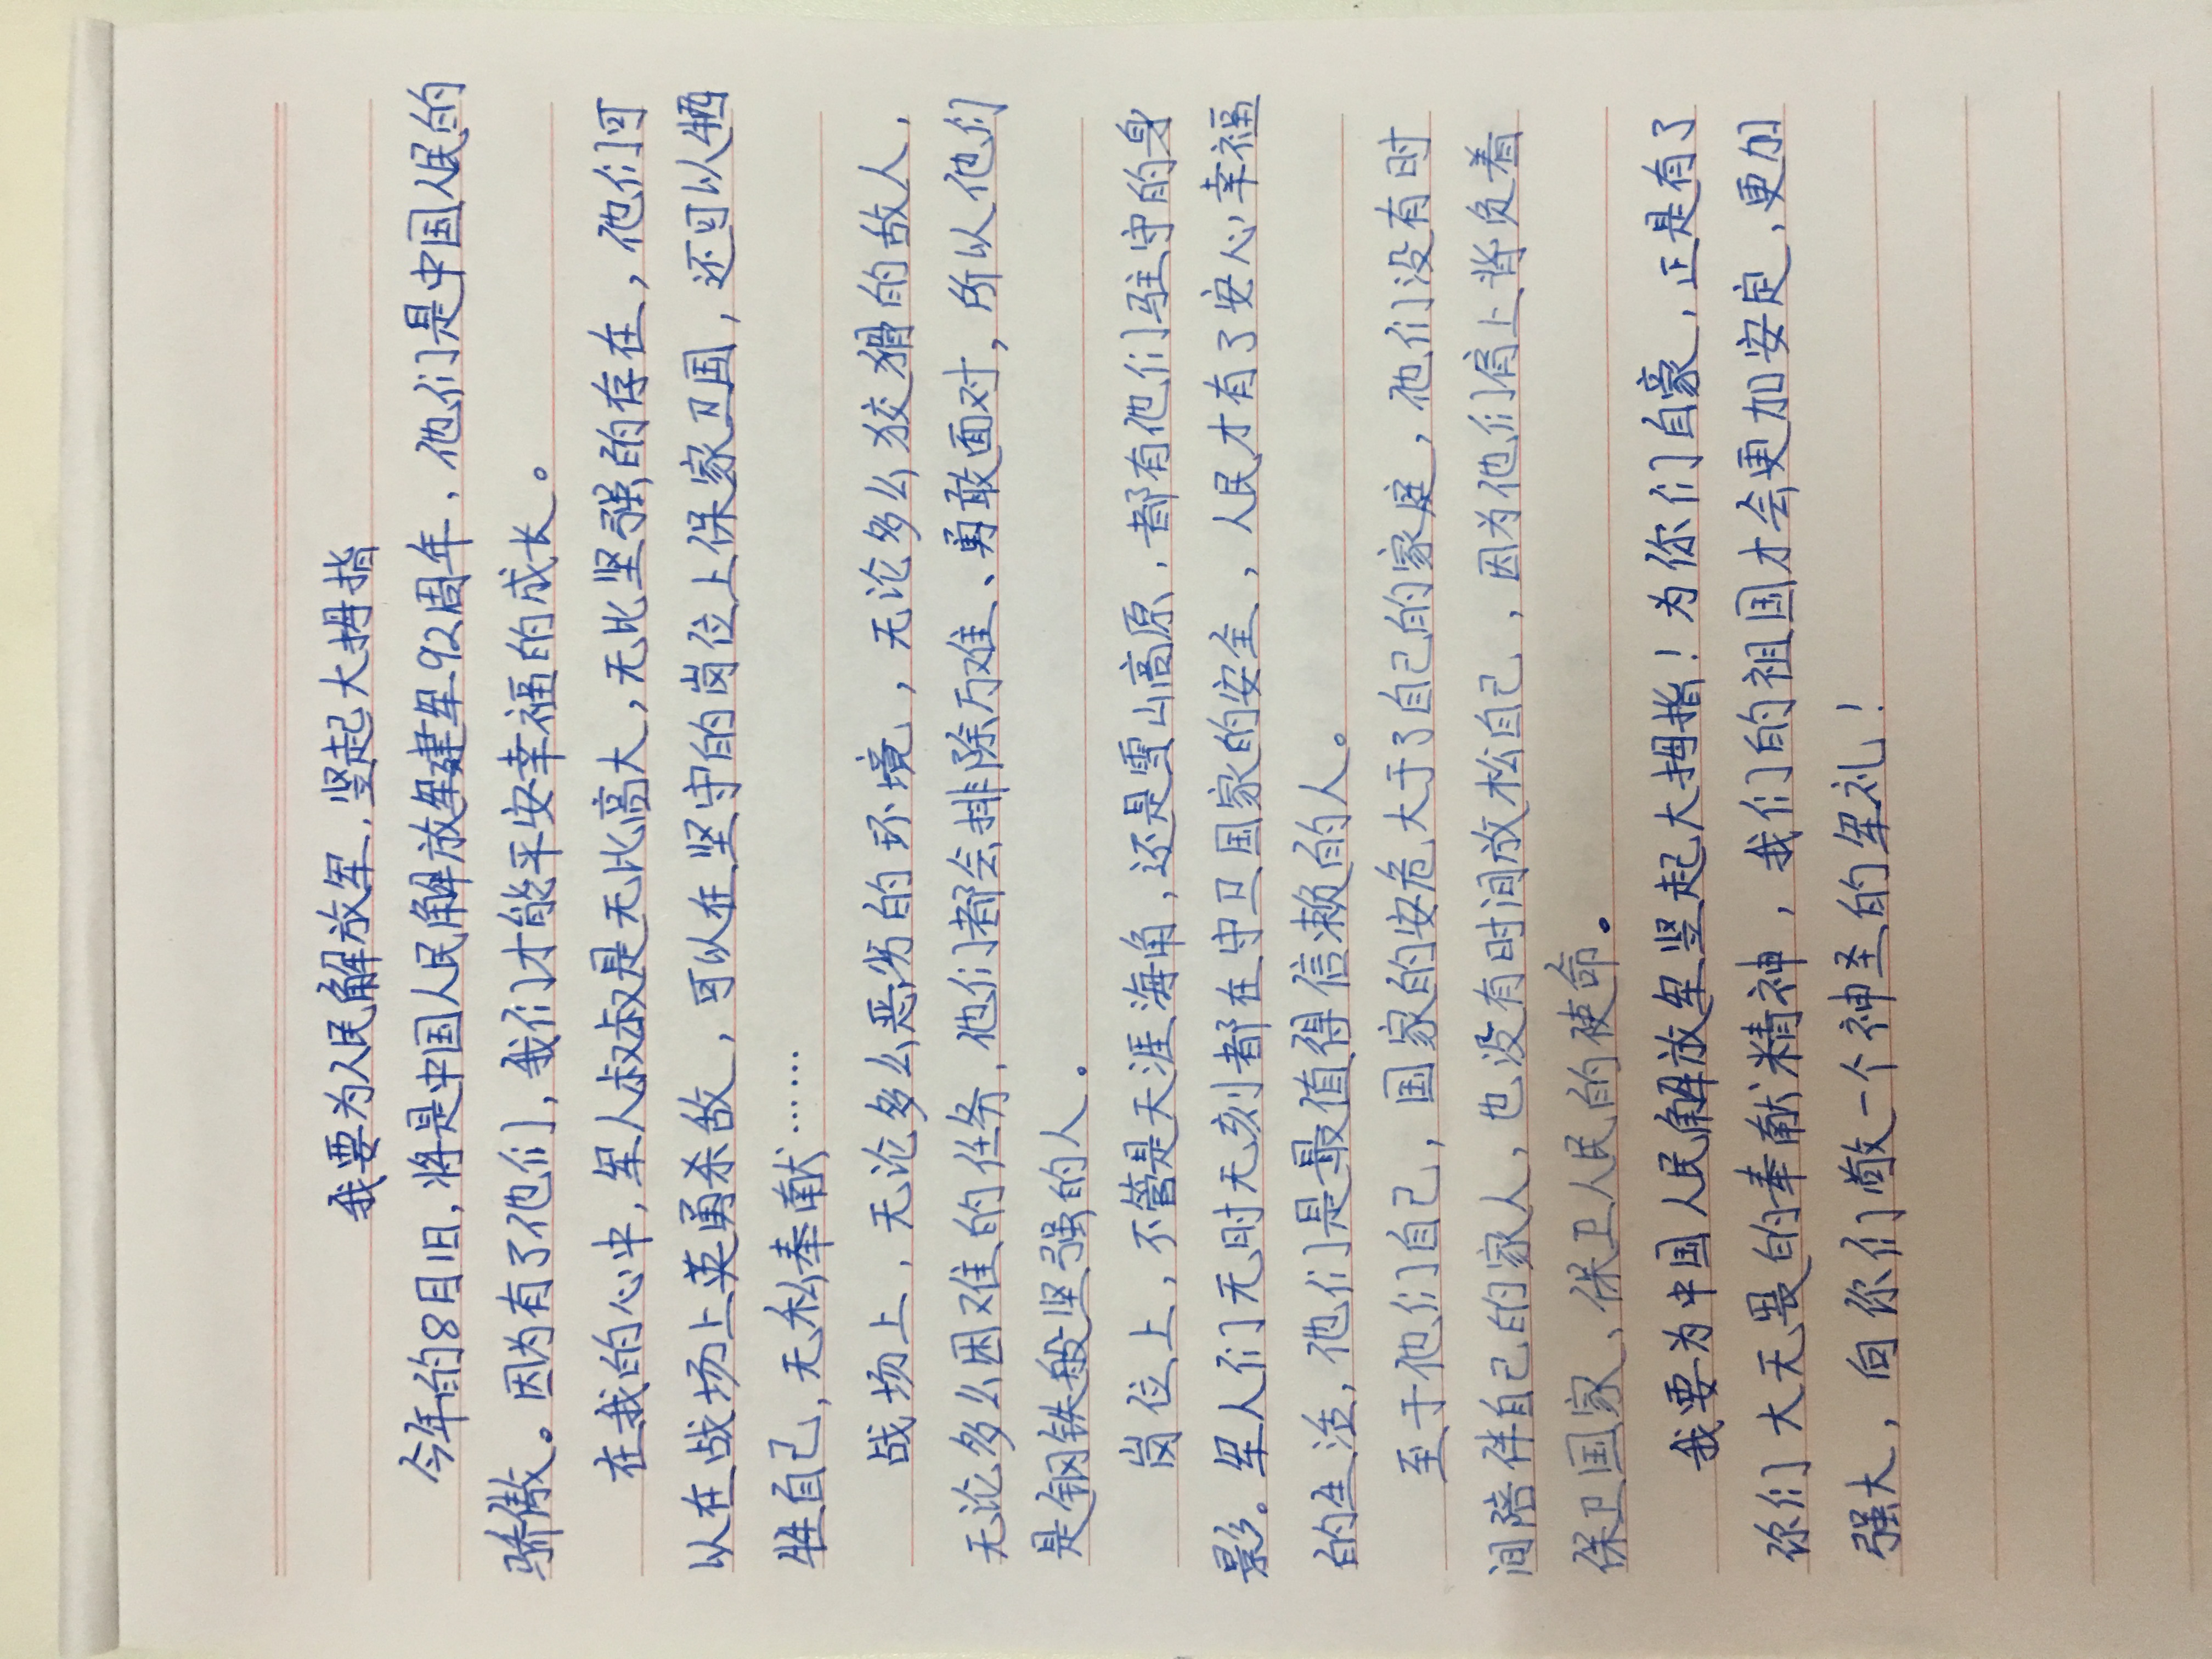 我要为人民解放军,竖起大拇指
今年的8月1日,将是中国人民解放军建军92周年,他们是中国人民的
骄傲。因为有了他们,我们才能平安幸福的成长。
在我的心中,军人叔叔是无比高大,无比坚强的存在,他们可
以在战场上英勇杀敌,可以在坚守的岗位上保家卫国,还可以牺
牲自己,无私奉献……
战场上,无论多么恶劣的环境,无论多么狡猾的敌人,
无论多么困难的任务,他们都会排除万难、勇敢面对,所以他们
是钢铁般坚强的人。
岗位上,不管是天涯海角,还是雪山高原,都有他们驻守的身
影。军人们无时无刻都在守卫国家的安全,人民才有了安心幸福
的生活,他们是最值得信赖的人。
至于他们自己,国家的安危大于了自己的家庭,他们没有时
间陪伴自己的家人,也没有时间放松自己,因为他们肩上背负着
保卫国家、保卫人民的使命。
我要为中国人民解放军竖起大拇指!为你们自豪,正是有了
你们大无畏的奉献精神,我们的祖国才会更加安定,更加
强大,向你们敬一个神圣的军礼!